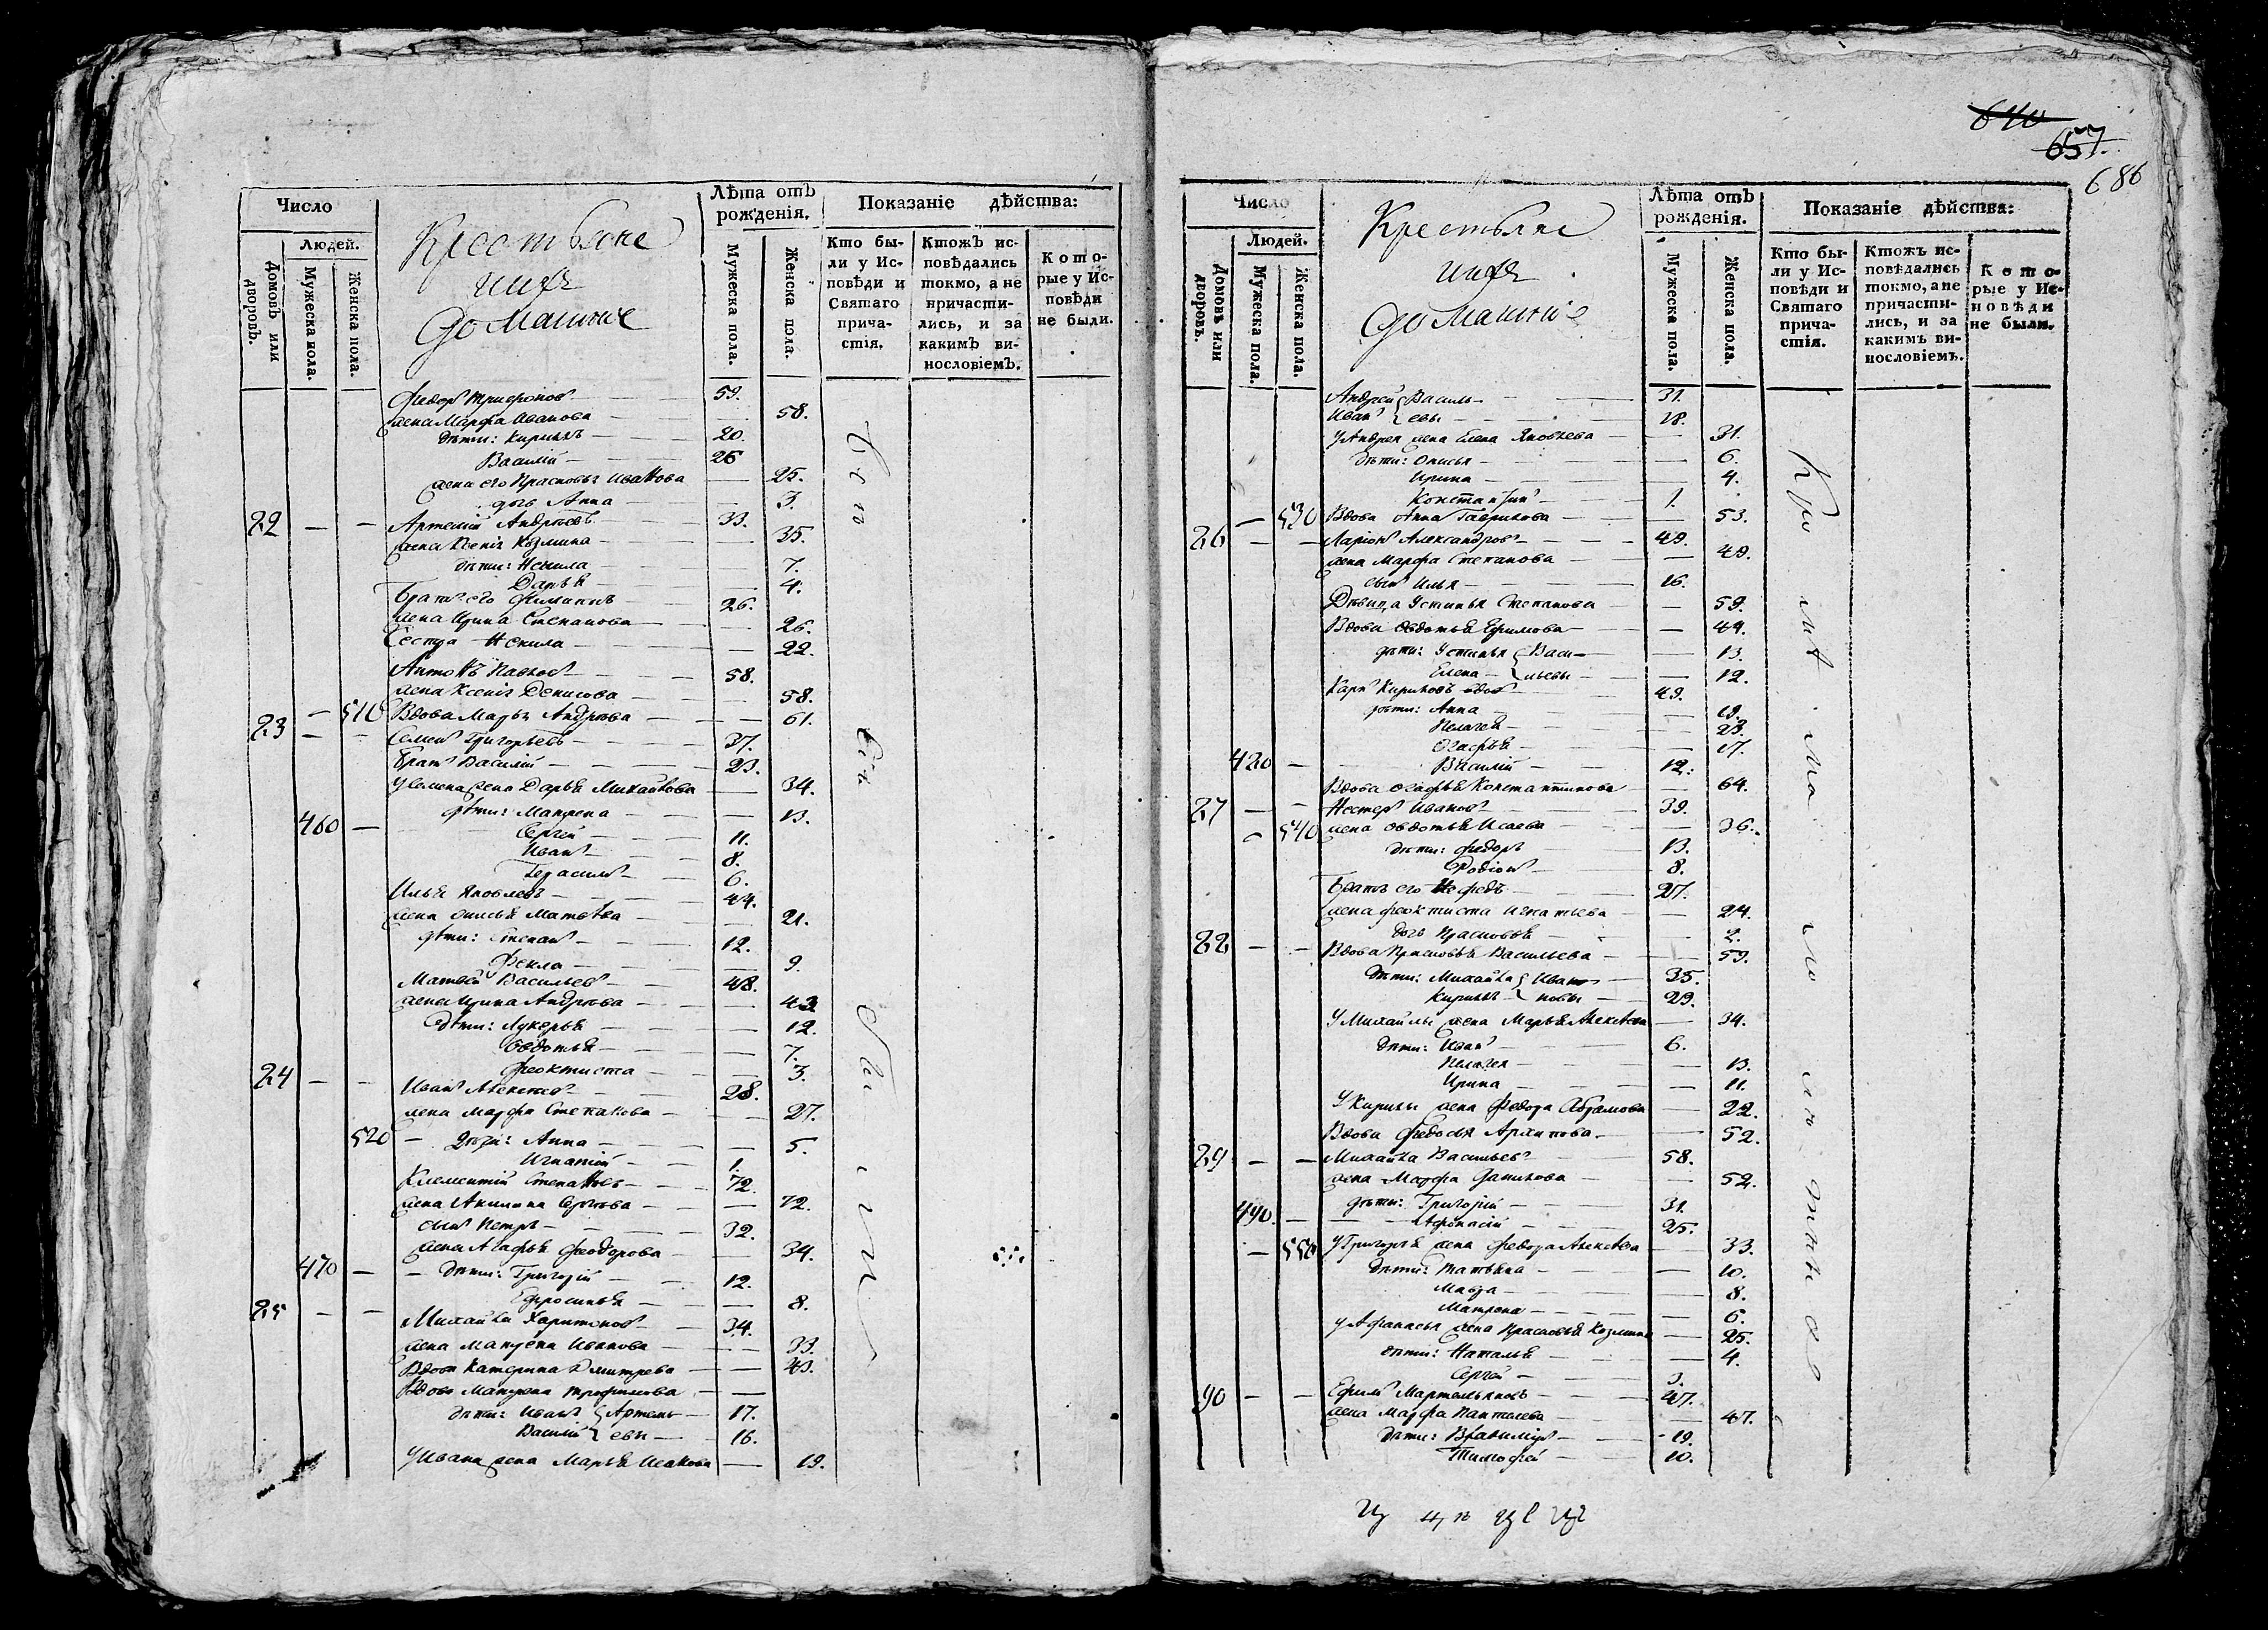 Число
Людей.
Домовъ или дворовъ.
Мужеска пола.
Женска пола.
Крестьяне
ихъ
домашніе
Лѣта отъ
рожденія.
Мужеска пола.
Женска пола.
Показаніе дѣйства:
Кто бы-
ли у Ис-
повѣди и
Святаго
прича-
стія.
Ктожъ ис-
повѣдались
токмо, а не
причасти-
лись, и за
какимъ ви-
нословіемъ.
Кото-
рые у Ис-
повѣди
не были.
Федоръ Трифоновъ 59.
жена Марфа Иванова 58.
дѣти: Кирилъ 20.
Василій 26
жена его Прасковья Иванова 25.
дочь Анна 3.
22 Артемій Андрѣевъ 33.
жена Ксенія Козмина 35.
дѣти: Ненила 7.
Дарья 4.
Братъ его Филипъ 26.
жена Ирина Степанова 26.
Сестра Ненила 22.
Антонъ Павловъ 58.
жена Ксенія Денисова 58.
510 Вдова Марья Андрѣева 61.
23 Семенъ Григорьевъ 37.
Братъ Василій 23.
У Семена жена Дарья Михайлова 34.
дѣти: Матрена 13.
460 Сергѣй 11.
Иванъ 8.
Герасимъ 6.
Илья Яковлевъ 44.
жена Матвѣева 21.
дѣти: Степанъ 12.
Фекла 9.
Матвѣй Васильевъ 48.
жена Ирина Андрѣева 43
дѣти: Лукерья 12.
Овдотья 7.
Феоктиста 3.
24 Иванъ Алексѣевъ 28.
жена Марфа Степанова 27.
520 дѣти: Анна 5.
Игнатій 1.
Клементій Степановъ 72.
жена Акилина Сергѣева 72.
сынъ Петръ 32.
жена Агафья Феодорова 34.
470 дѣти: Григорій 12.
Ефросинья 8.
25 Михайла Харитоновъ 34.
жена Матрена Иванова 33.
Вдова Катерина Дмитрева 43.
Вдова Матрена Трофимова
дѣти: Иванъ Артемь- 17.
Василій евы 16.
У Ивана жена Марья Исакова 19.
640
657.
686
Число
Людей.
Домовъ или дворовъ.
Мужеска пола.
Женска пола.
Крестьяне
ихъ
домашніе
Лѣта отъ
рожденія.
Мужеска пола.
Женска пола.
Показаніе дѣйства:
Кто бы-
ли у Ис-
повѣди и
Святаго
прича-
стія.
Ктожъ ис-
повѣдались
токмо, а не
причасти-
лись, и за
какимъ ви-
нословіемъ.
Кото-
рые у Ис-
повѣди
не были.
Андрей Василь- 31.
Иванъ евы 18.
У Андрея жена Елена Яковлева 31.
дѣти: Онисья 6.
Ирина 4.
Константинъ 1.
530 Вдова Анна Гаврилова 53.
26 Ларіонъ Александровъ 49.
жена Марфа Степанова 49.
сынъ Илья 16.
Дѣвица Устинья Степанова 59.
Вдова Овдотья Ефимова 44.
дѣти: Устинья Васи- 13.
Елена льевы 12.
Карпъ Кириловъ вдовъ 49.
дѣти: Анна 19.
Пелагея 23.
Огафья 17.
420 Василій 12.
Вдова Огафья Константинова 64.
27 Нестеръ Ивановъ 39.
540 жена Овдотья Исаева 36.
дѣти: Федоръ 13.
Родіонъ 8.
Братъ его Нефедъ 27.
жена Феоктиста Игнатьева 24.
дочь Прасковья 2.
28 Вдова Прасковья Васильева 59.
дѣти: Михайла Ива- 35.
Кирилъ новы 29.
У Михайлы жена Марья Алексѣева 34.
дѣти: Иванъ 6.
Пелагея 13.
Ирина 11.
У Кирилы жена Федора Абрамова 22.
Вдова Федосья Архипова 52.
29 Михайла Васильевъ 58.
жена Марфа Данилова 52.
дѣти: Григорій 31.
490. Афонасій 25.
550 У Григорья жена Федора Алексѣева 33.
дѣти: Татьяна 10.
Мавра 8.
Матрена 6.
У Афанасья жена Прасковья Козмина 25.
дѣти: Наталья 4.
Сергѣй 3.
90 Ефимъ Мартемьяновъ 47.
жена Марфа Пантелева 47.
дѣти: Владимиръ 19.
Тимофей 10.